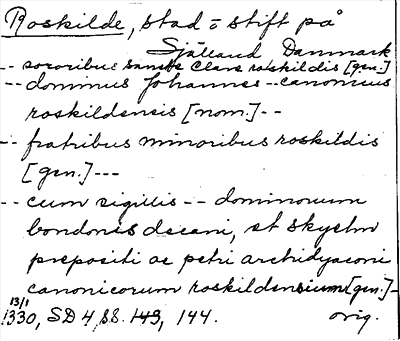 Roskilde, stad = stift på
Själland Danmark
-- sororibus sancte Clare roskildis [gen.]
-- dominus Johannes -- canonicus
roskildensis [nom.] --
-- fratribus minoribus roskildis
[gen.] ---
-- cum sigillis -- dominorum
bondonis decani, et skyelm
prepositi ac petri archidyaconi
canonicorum roskildensium [gen.] -
13/1
1330, SD 4, s8. 143, 144. orig.